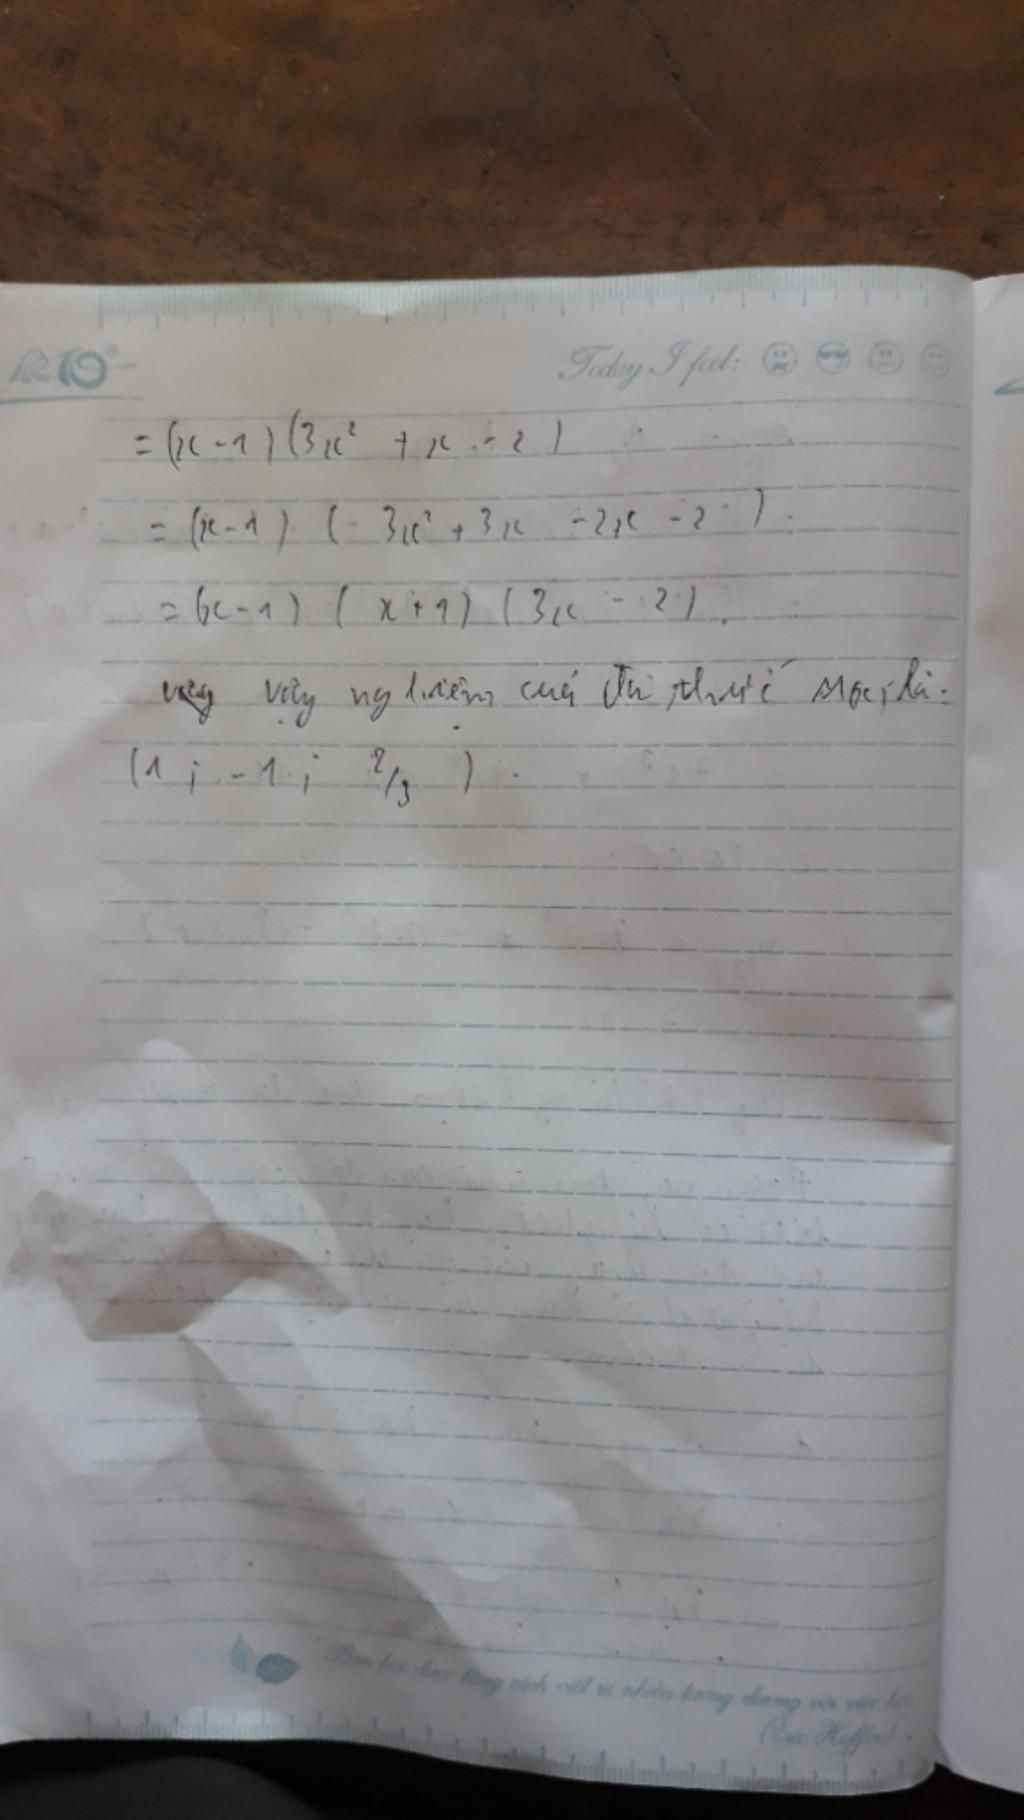 Today I feel:
= (x - 1) (3x² + x - 2)
= (x - 1) (3x² + 3x - 2x - 2).
= (x - 1) (x + 1) (3x - 2).
vậy nghiệm của đa thức là:
(1; -1; 2/3).
Bạn học được bằng cách viết ra nhiều tương đương với việc học
(Eric Hoffer).